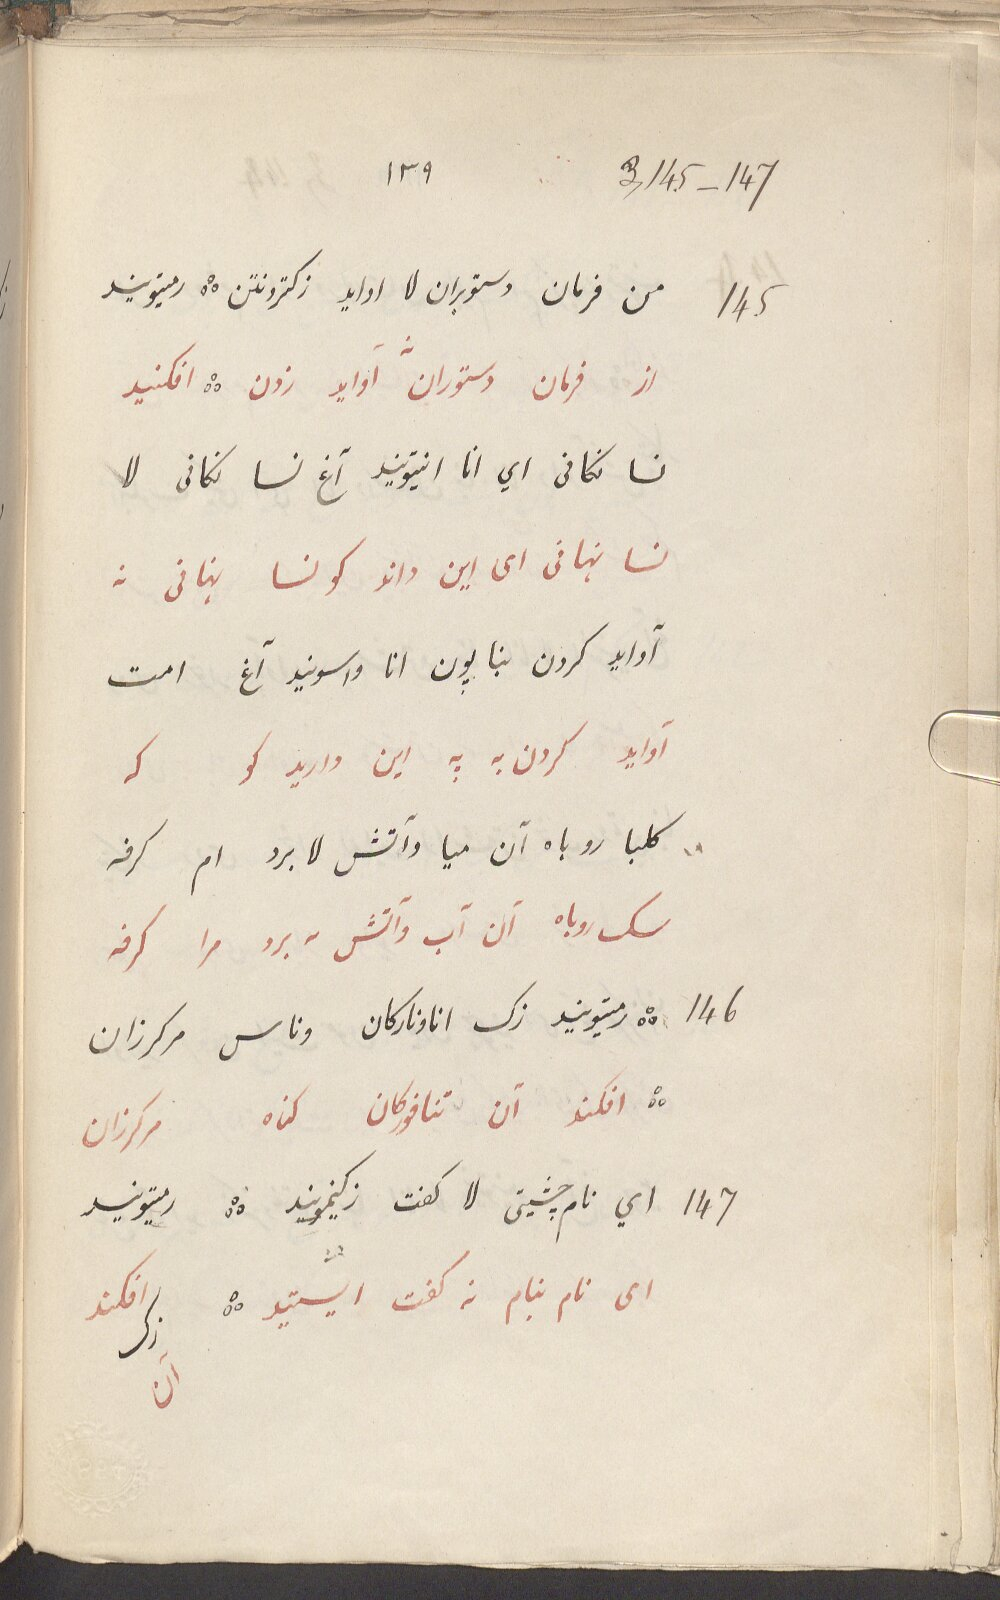 3, 145 – 147 ١٣٩
145 من فرمان دستوبران لا اواید زکترونتن ഃ رمیتونید
از فرمان دستوران نه آواید زدن ഃ افکنید
نسا نکانی اي انا انیتونید آغ نسا نکانی لا
نسا نهانی ای این داند کو نسا نهانی نه
آواید کردن بنا پون انا واسونید آغ امت
آواید کردن به په این دارید کو که
کلبا روباه آن میا وآتش لا برد ام کرفه
سک روباه آن آب وآتش نه برد مرا کرفه
146 رمیتونید زک اناونارکان وناس مرکرزان
افکند آن تنافورکان کناه مرکرزان
147 اي نام چشیتی لا کفت زکینمونید رمیتونید
ای نام بنام نه کفت ایستید افکند
زک
آن